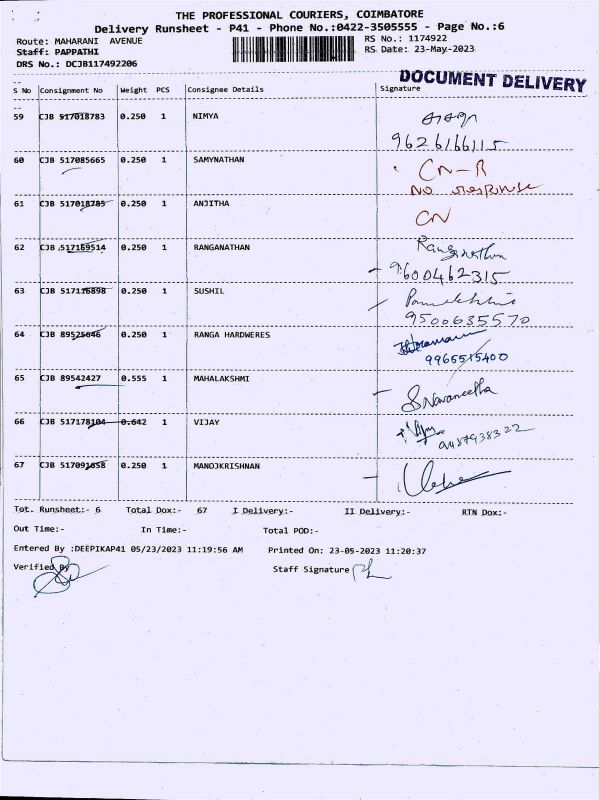 THE PROFESSIONAL COURIERS, COIMBATORE
Delivery Runsheet - P41 - Phone No.:0422-3505555 - Page No.:6
Route: MAHARANI AVENUE
RS No.: 1174922
Staff: PAPPATHI
RS Date: 23-May-2023
DRS No.: DCJB117492206
DOCUMENT DELIVERY
S No Consignment No Weight PCS Consignee Details Signature
59 CJB 517018783 0.250 1 NIMYA
9626166115
60 CJB 517085665 0.250 1 SAMYNATHAN CN-R
No response
61 CJB 517018785 0.250 1 ANJITHA CN
62 CJB 517169514 0.250 1 RANGANATHAN Ranganathan
9600462315
63 CJB 517116898 0.250 1 SUSHIL
9500635570
64 CJB 89525646 0.250 1 RANGA HARDWERES
9965515400
65 CJB 89542427 0.555 1 MAHALAKSHMI S Navaneetha
66 CJB 517178104 0.642 1 VIJAY Vijay
9487938322
67 CJB 517091658 0.250 1 MANOJKRISHNAN
Tot. Runsheet:- 6 Total Dox:- 67 I Delivery:- II Delivery:- RTN Dox:-
Out Time:- In Time:- Total POD:-
Entered By :DEEPIKAP41 05/23/2023 11:19:56 AM Printed On: 23-05-2023 11:20:37
Verified By Staff Signature